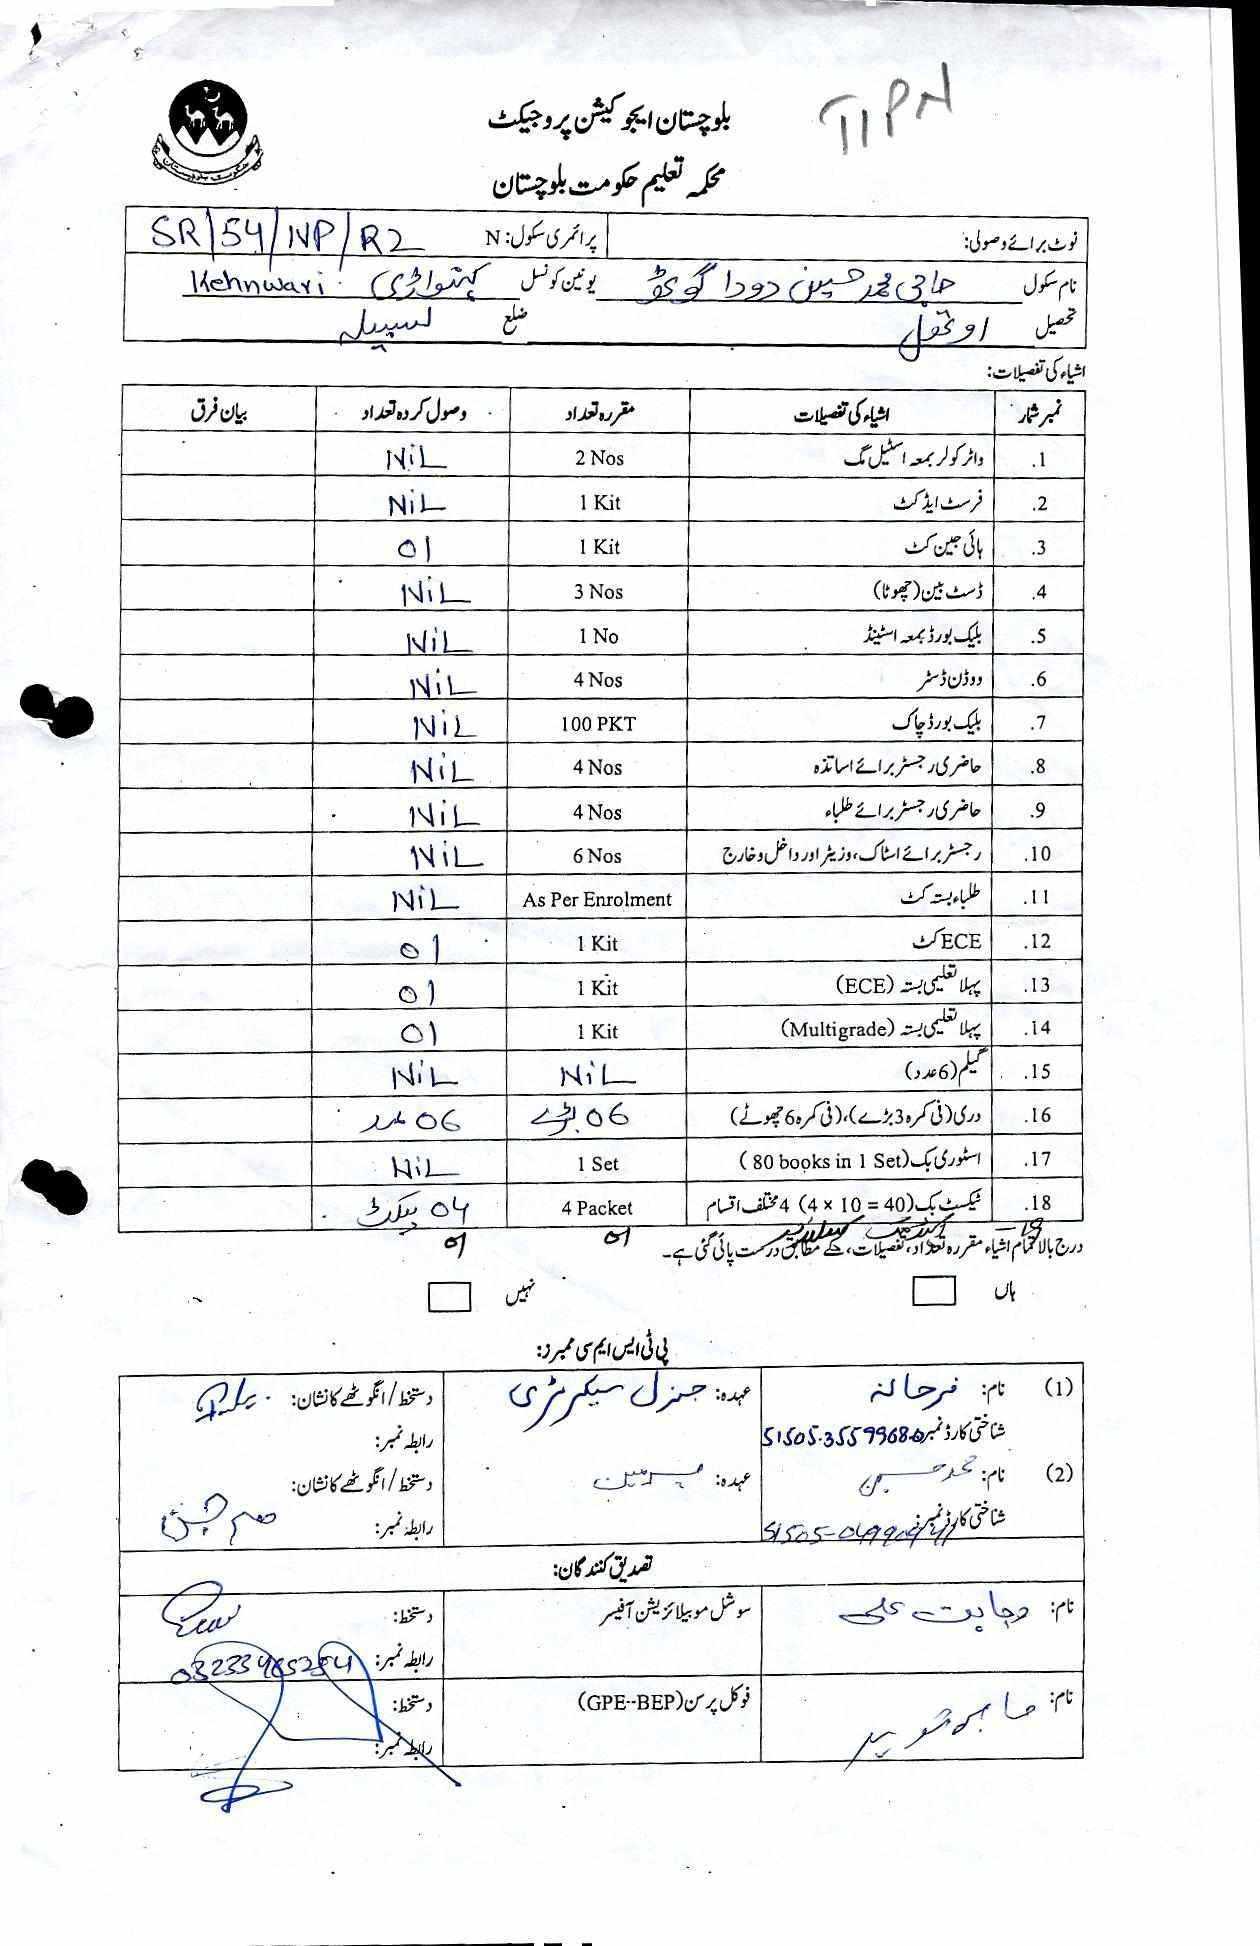 TIPN
حکومت بلوچستان
بلوچستان ایجوکیشن پروجیکٹ
محکمہ تعلیم حکومت بلوچستان
نوٹ برائے وصولی: پرائمری سکول: N SR/54/NP/R2
نام سکول حاجی محمد حسین دودا گوٹھ یونین کونسل کہنواڑی Kehnwari
تحصیل اوتھل ضلع لسبیلہ
اشیاء کی تفصیلات:
نمبر شمار اشیاء کی تفصیلات مقررہ تعداد وصول کردہ تعداد بیان فرق
1. واٹر کولر بمعہ اسٹیل مگ 2 Nos NiL
2. فرسٹ ایڈ کٹ 1 Kit NiL
3. ہائی جین کٹ 1 Kit 01
4. ڈسٹ بین (چھوٹا) 3 Nos NiL
5. بلیک بورڈ بمعہ اسٹینڈ 1 No NiL
6. ووڈن ڈسٹر 4 Nos NiL
7. بلیک بورڈ چاک 100 PKT NiL
8. حاضری رجسٹر برائے اساتذہ 4 Nos NiL
9. حاضری رجسٹر برائے طلباء 4 Nos NiL
10. رجسٹر برائے اسٹاک، وزیٹر اور داخل و خارج 6 Nos NiL
11. طلباء بستہ کٹ As Per Enrolment NiL
12. ECE کٹ 1 Kit 01
13. پہلا تعلیمی بستہ (ECE) 1 Kit 01
14. پہلا تعلیمی بستہ (Multigrade) 1 Kit 01
15. گیلم (6 عدد) NiL NiL
16. دری (فی کمرہ 3 بڑے)، (فی کمرہ 6 چھوٹے) 06 بڑے 06 عدد
17. اسٹوری بک (80 books in 1 Set) 1 Set NiL
18. ٹیکسٹ بک (4 x 10 = 40) 4 مختلف اقسام 4 Packet 04 پیکٹ
19 01 01
درج بالا تمام اشیاء مقررہ تعداد، تفصیلات، کے مطابق درست پائی گئی ہے۔
ہاں نہیں
پی ٹی ایس ایم سی ممبرز:
(1) نام: فرحانہ عہدہ: جنرل سیکرٹری دستخط/انگوٹھے کا نشان:
شناختی کارڈ نمبر 51505-3559968-0 رابطہ نمبر:
(2) نام: محمد حسین عہدہ: چیرمین دستخط/انگوٹھے کا نشان:
شناختی کارڈ نمبر: رابطہ نمبر:
تصدیق کنندگان:
نام: وجاہت علی سوشل موبیلائزیشن آفیسر دستخط:
رابطہ نمبر:
نام: فوکل پرسن (GPE--BEP) دستخط:
رابطہ نمبر: